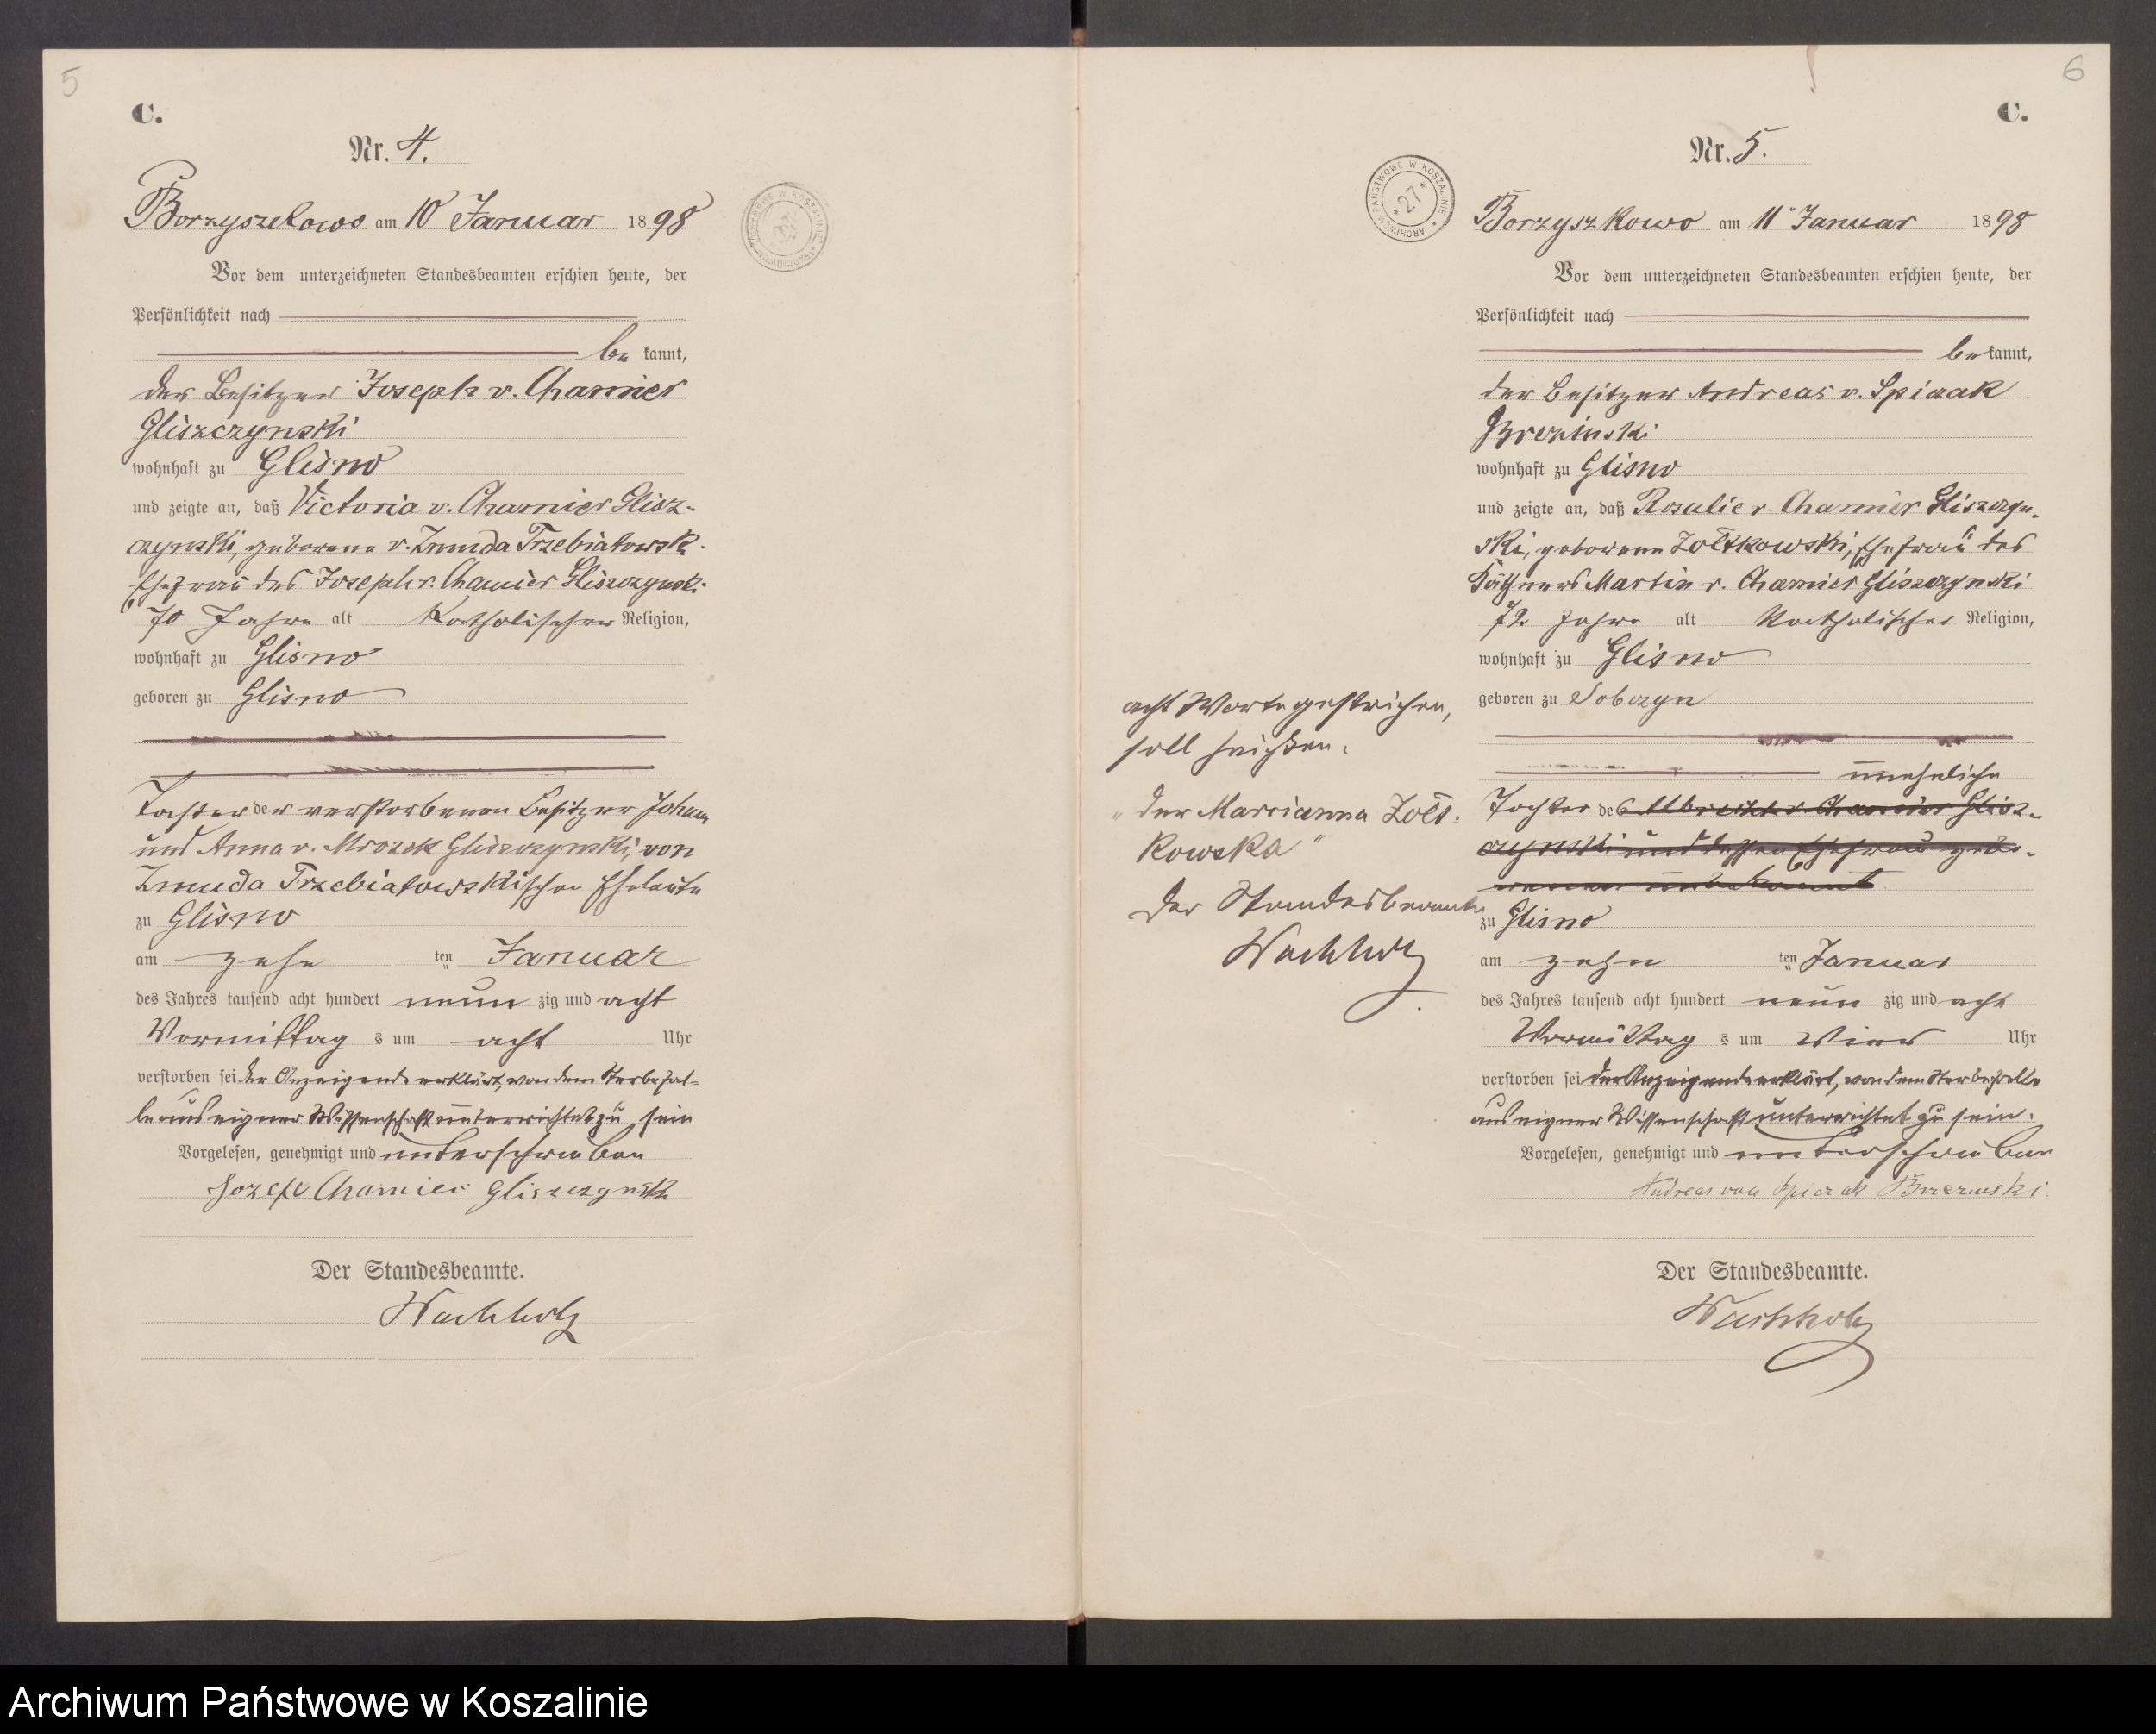 5
C.
Nr. 4.
Borzyszkowo am 10 Januar 1898
Vor dem unterzeichneten Standesbeamten erschien heute, der
Persönlichkeit nach
be kannt,
der Besitzer Joseph v. Chamier
Gliszczynski
wohnhaft zu Glisno
und zeigte an, daß Victoria v. Chamier Glisz-
czynski, geborene v. Zmuda Trzebiatowsk.
Ehefrau des Joseph v. Chamier Gliszczynski
70 Jahre alt Katholischer Religion,
wohnhaft zu Glisno
geboren zu Glisno
Tochter der verstorbenen Besitzer Johann
und Anna v. Mrozek Gliszczynski, von
Zmuda Trzebiatowskischen Eheleute
zu Glisno
am zehn ten Januar
des Jahres tausend acht hundert neun zig und acht
Vormittag s um acht Uhr
verstorben sei der Anzeigende erklärt, von dem Sterbefal-
le aus eigner Wissenschaft unterrichtet zu sein
Vorgelesen, genehmigt und unterschrieben
Jozef Chamier Gliszczynski
Der Standesbeamte.
Wachholz
6
C.
Nr. 5.
ARCHIWUM PAŃSTWOWE W KOSZALINIE
* 27 *
Borzyszkowo am 11 Januar 1898
Vor dem unterzeichneten Standesbeamten erschien heute, der
Persönlichkeit nach
be kannt,
der Besitzer Andreas v. Spiczak
Brezinski
wohnhaft zu Glisno
und zeigte an, daß Rosalie v. Chamier Gliszczyn-
ski, geborene Zoltkowski, Ehefrau des
Käthners Martin v. Chamier Gliszczynski
72 Jahre alt Katholischer Religion,
wohnhaft zu Glisno
geboren zu Sobczyn
uneheliche
Tochter des Albrecht v. Chamier Glisz-
czynski und dessen Ehefrau gebo-
renen unbekannt
zu Glisno
am zehn ten Januar
des Jahres tausend acht hundert neun zig und acht
Vormittag s um vier Uhr
verstorben sei der Anzeigende erklärt, von dem Sterbefalle
aus eigner Wissenschaft unterrichtet zu sein.
Vorgelesen, genehmigt und unterschrieben
Andreas von Spiczak Brzezinski.
Der Standesbeamte.
Wachholz
acht Worte gestrichen,
soll heißen.
"der Marrianna Zolt-
kowska"
Der Standesbeamte
Wachholz
Archiwum Państwowe w Koszalinie